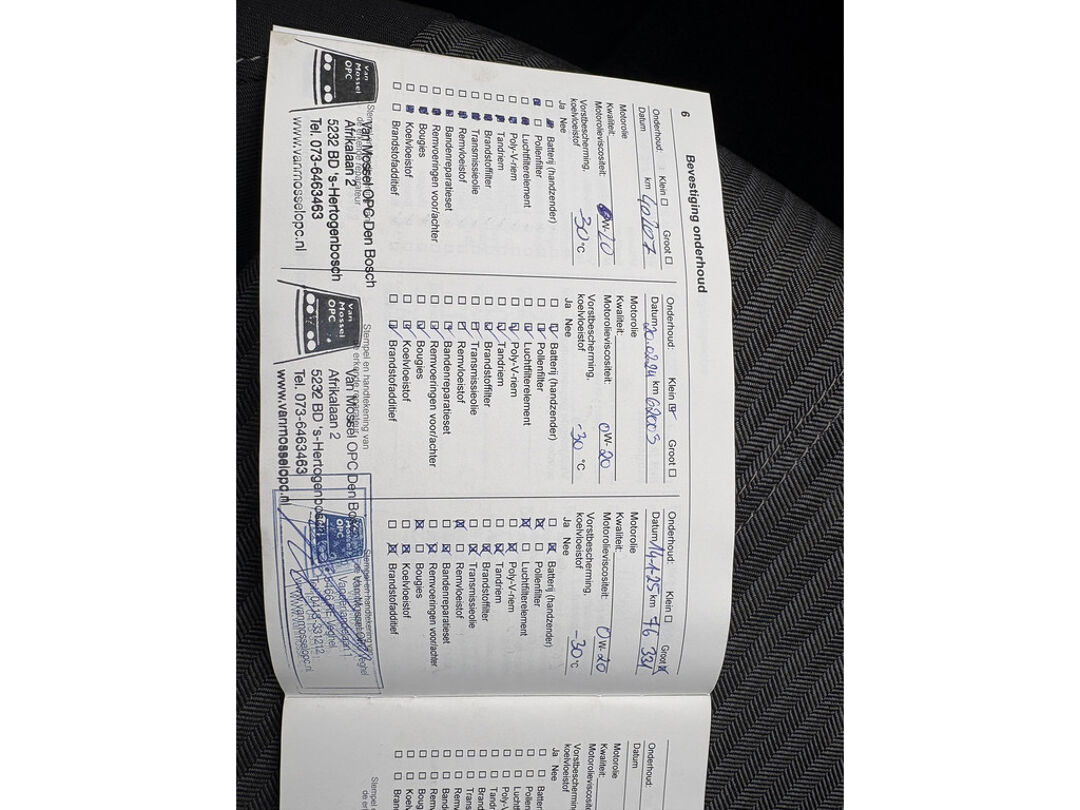 6
Bevestiging onderhoud
Onderhoud: Klein Groot
Datum km 40207
Motorolie
Kwaliteit:
Motorolieviscositeit: 0W-20
Vorstbescherming,
koelvloeistof -30 °C
Ja Nee
Batterij (handzender)
Pollenfilter
Luchtfilterelement
Poly-V-riem
Tandriem
Brandstoffilter
Transmissieolie
Remvloeistof
Bandenreparatieset
Remvoeringen voor/achter
Bougies
Koelvloeistof
Brandstofadditief
Stempel en handtekening van
de erkende reparateur
Van Mossel OPC
Van Mossel OPC Den Bosch
Afrikalaan 2
5232 BD 's-Hertogenbosch
Tel. 073-6463463
www.vanmosselopc.nl
Onderhoud: Klein Groot
Datum 20.02.24 km 62003
Motorolie
Kwaliteit:
Motorolieviscositeit: 0W-20
Vorstbescherming,
koelvloeistof -30 °C
Ja Nee
Batterij (handzender)
Pollenfilter
Luchtfilterelement
Poly-V-riem
Tandriem
Brandstoffilter
Transmissieolie
Remvloeistof
Bandenreparatieset
Remvoeringen voor/achter
Bougies
Koelvloeistof
Brandstofadditief
Stempel en handtekening van
de erkende reparateur
Van Mossel OPC
Van Mossel OPC Den Bosch
Afrikalaan 2
5232 BD 's-Hertogenbosch
Tel. 073-6463463
www.vanmosselopc.nl
Onderhoud: Klein Groot
Datum 14-1-25 km 76 331
Motorolie
Kwaliteit:
Motorolieviscositeit: 0W-20
Vorstbescherming,
koelvloeistof -30 °C
Ja Nee
Batterij (handzender)
Pollenfilter
Luchtfilterelement
Poly-V-riem
Tandriem
Brandstoffilter
Transmissieolie
Remvloeistof
Bandenreparatieset
Remvoeringen voor/achter
Bougies
Koelvloeistof
Brandstofadditief
Stempel en handtekening
Van Mossel OPC Veghel
Veghel
www.vanmosselopc.nl
Onderhoud:
Datum
Motorolie
Kwaliteit:
Motorolieviscos
Vorstbescherm
koelvloeistof
Ja Nee
Batter
Pollen
Luchtf
Poly-V
Tandr
Brand
Trans
Remv
Band
Remv
Boug
Koelv
Bran
Stempel
de er